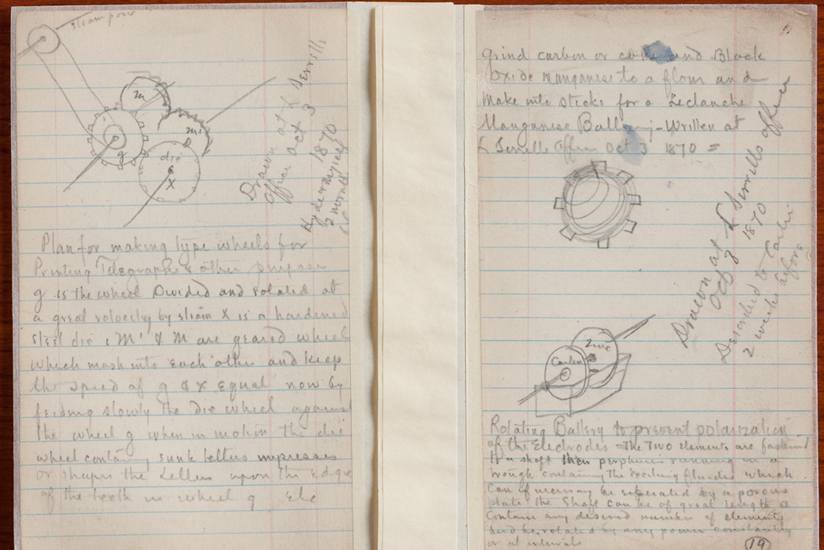 steam power
m
m
g
die
X
Drawn at L Serrills
Office Oct 3
1870
Plan for making type wheels for
Printing Telegraphs & other purposes
g is the wheel Divided and rotated at
a great velocity by steam X is a hardened
steel die M' & M are geared wheels
which mash into each other and keep
the speed of g & X equal now by
feeding slowly the die wheel against
the wheel g when in motion the die
wheel contain sunk letters impresses
or shapes the letters upon the edge
of the teeth in wheel g Etc
grind carbon or and Black
Oxide Manganese to a flour and
make into sticks for a Leclanche
Manganese Battery - Written at
L Serrills Office Oct 3 1870 =
Drawn at L Serrills office
Oct 3 1870
Described to
2 weeks before
Zinc
Carbon
Rotating Battery to prevent polarization
of the Electrodes = The Two elements are fastened
to a shaft their peripheries running in a
trough containing the exciting fluids which
can if necessary be seperated by a porous
plate the shaft can be of great length &
contain any desired number of elements
and be rotated by any power constantly
or at intervals
19